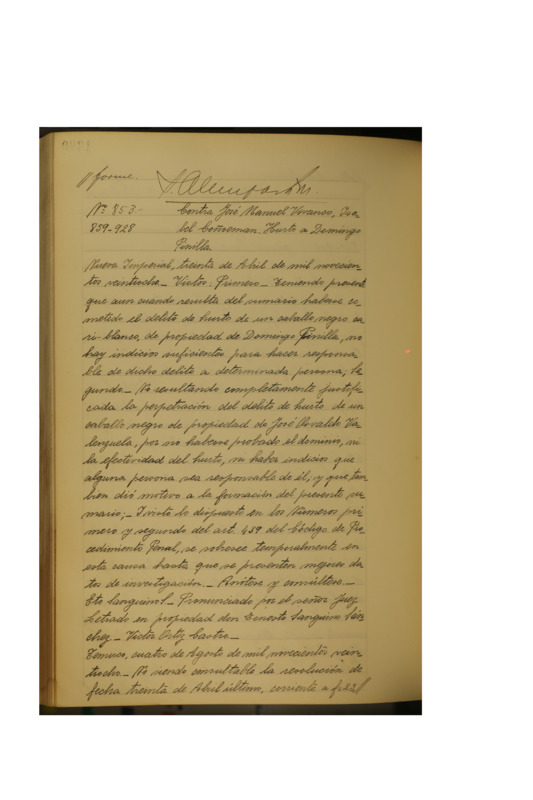 forme.
Nº 853.- Contra José Manuel Vivanco, Isa-
859-928 bel Coñoeman. Hurto a Domingo
Pinilla
Nueva Imperial, treinta de Abril de mil novecien-
tos veintiocho._ Vistos: Primero._ Teniendo present
que aun cuando resulta del sumario haberse co-
metido el delito de hurto de un caballo negro ca
ri-blanco, de propiedad de Domingo Pinilla, no
hay indicios suficientes para hacer responsa-
ble de dicho delito a determinada persona; Se
gundo._ No resultando completamente justifi-
cada la perpetración del delito de hurto de un
caballo negro de propiedad de José Osvaldo Va-
lenzuela, por no haberse probado el dominio, ni
la efectividad del hurto, ni haber indicios que
alguna persona sea responsable de él; y que tam
bien dió motivo a la formación del presente su-
mario;_ I visto lo dispuesto en los Números pri
mero y segundo del art. 459 del Código de Pro
cedimiento Penal, se sobresee temporalmente en
esta causa hasta que se presenten mejores da
tos de investigación._ Anótese y consúltese._
Eto Sanguino S._ Pronunciado por el señor Juez
Letrado en propiedad don Ernesto Sanguino Sán
chez._ Víctor Ortiz Castro._
Temuco, cuatro de Agosto de mil novecientos vein-
tiocho._ No siendo consultable la resolución de
fecha treinta de Abril último, corriente a f. 22